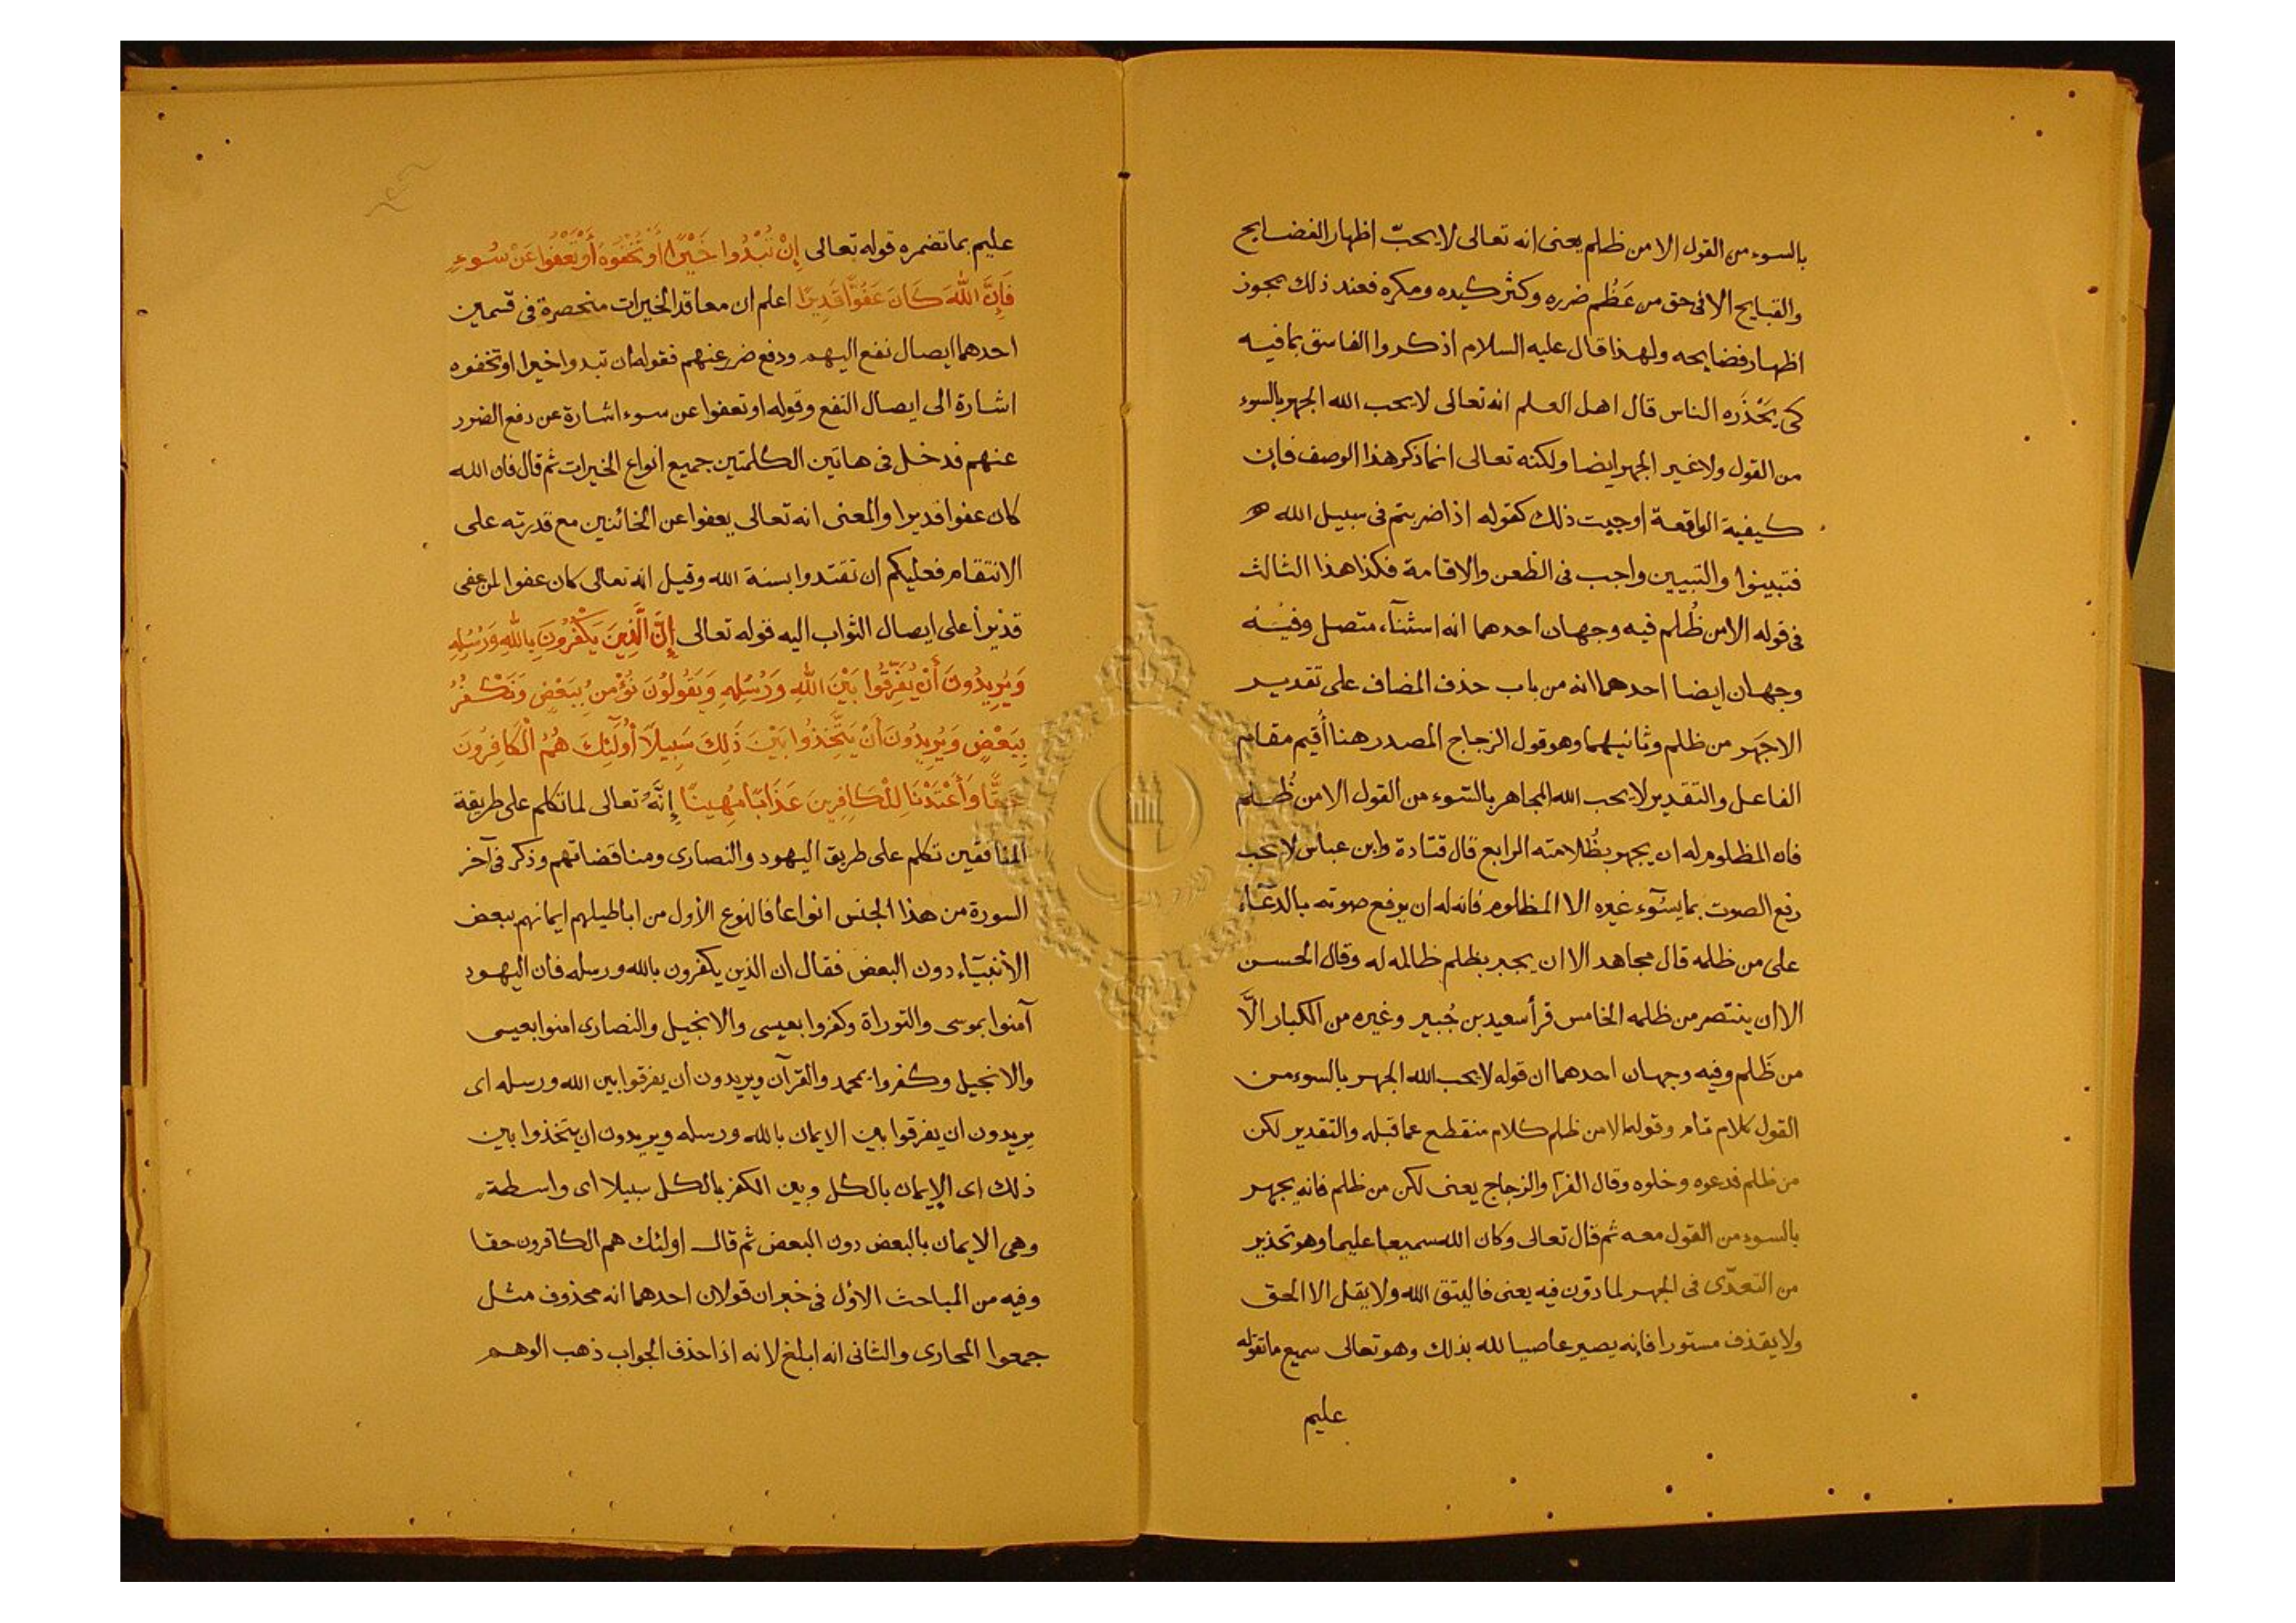 بالسوء من القول الا من ظلم يعنى انه تعالى لا يحبّ اظهار الفضايح
والقبايح الا فى حق من عَظُم ضرره وكثر كيده ومكره فعند ذلك يجوز
اظهار فضايحه ولهذا قال عليه السلام اذكروا الفاسق بما فيه
كى يَحْذَره الناس قال اهل العلم انه تعالى لا يحب الله الجهر بالسوء
من القول ولا غير الجهر ايضا ولكنه تعالى انما ذكر هذا الوصف فإن
كيفية الواقعة اوجبت ذلك كقوله اذا ضربتم فى سبيل الله
فتبينوا والتبيين واجب فى الظعن والاقامة فكذا هذا الثالث
فى قوله الا من ظُلم فيه وجهان احدهما انه استثنآء متصل وفيه
وجهان ايضا احدهما انه من باب حذف المضاف على تقدير
الا جَهر من ظلم وثانيهما وهو قول الزجاج المصدر هنا أُقيم مقام
الفاعل والتقدير لا يحب الله المجاهر بالسّوء من القول الا من ظُلم
فان المظلوم له ان يجهر بظُلامته الرابع قال قتادة وابن عباس لا يحب
رفع الصوت بما يسُوٓء غيره الا المظلوم فانه له ان يرفع صوته بالدعآء
على من ظلمه قال مجاهد الا ان يجبر بظلم ظالمه له وقال الحسن
الا ان ينتصر من ظلمه الخامس قرأ سعيد بن جُبير وغيره من الكبار الَّا
من ظَلم وفيه وجهان احدهما ان قوله لا يحب الله الجهر بالسوء من
القول كلام تام وقوله الا من ظلم كلام منقطع عما قبله والتقدير لكن
من ظلم فدعوه وخلوه وقال الفرآ والزجاج يعنى لكن من ظلم فانه يجهر
بالسوء من القول معه ثم قال تعالى وكان الله سميعا عليما وهو تحذير
من التعدّى فى الجهر لما دوّن فيه يعنى فاليتق الله ولا يقل الا الحق
ولا يقذف مستورا فإنه يصير عاصيا لله بذلك وهو تعالى سميع ما تقوله
عليم
عليم بما تضمره قوله تعالى إِنْ تُبْدُوا خَيْرًا أَوْ تُخْفُوهُ أَوْ تَعْفُوا عَنْ سُوءٍ
فَإِنَّ اللهَ كَانَ عَفُوًّا قَدِيرًا اعلم ان معاقد الخيرات منحصرة فى قسمين
احدهما ايصال نفع اليهم ودفع ضرر عنهم فقوله ان تبدوا خيرا او تخفوه
اشارة الى ايصال النفع وقوله او تعفوا عن سوء اشارة عن دفع الضرر
عنهم فدخل فى هاتين الكلمتين جميع انواع الخيرات ثم قال فان الله
كان عفوا قديرا والمعنى انه تعالى يعفوا عن الخائنين مع قدرته على
الانتقام فعليكم ان تقتدوا بسنة الله وقيل انه تعالى كان عفوا لمن عفى
قديرأ على ايصال الثواب اليه قوله تعالى إِنَّ الَّذِينَ يَكْفُرُونَ بِاللهِ وَرُسُلِهِ
وَيُرِيدُونَ أَنْ يُفَرِّقُوا بَيْنَ اللهِ وَرُسُلِهِ وَيَقُولُونَ نُؤْمِنُ بِبَعْضٍ وَنَكْفُرُ
بِبَعْضٍ وَيُرِيدُونَ أَنْ يَتَّخِذُوا بَيْنَ ذَلِكَ سَبِيلًا أُولَٓئِكَ هُمُ الْكَافِرُونَ
حَقًّا وَأَعْتَدْنَا لِلْكَافِرِينَ عَذَابًا مُهِينًا إِنَّهُ تعالى لما تكلم على طريقة
المنافقين تكلم على طريق اليهود والنصارى ومناقضاتهم وذكر فى آخر
السورة من هذا الجنس انواعا فالنوع الأول من اباطيلهم ايمانهم ببعض
الأنبيآء دون البعض فقال ان الذين يكفرون بالله ورسله فان اليهود
آمنوا بموسى والتوراة وكفروا بعيسى والانجيل والنصارى امنوا بعيسى
والانجيل وكفروا بمحمد والقرآن ويريدون أن يفرقوا بين الله ورسله اى
يريدون ان يفرقوا بين الايمان بالله ورسله ويريدون ان يتخذوا بين
ذلك اى الإيمان بالكل وبين الكفر بالكل سبيلا اى واسطة
وهى الايمان بالبعض دون البعض ثم قال اولئك هم الكافرون حقا
وفيه من المباحث الاول فى خبر ان قولان احدهما انه محذوف مثل
جمعوا المحارى والثانى انه ابلغ لانه اذا حذف الجواب ذهب الوهم